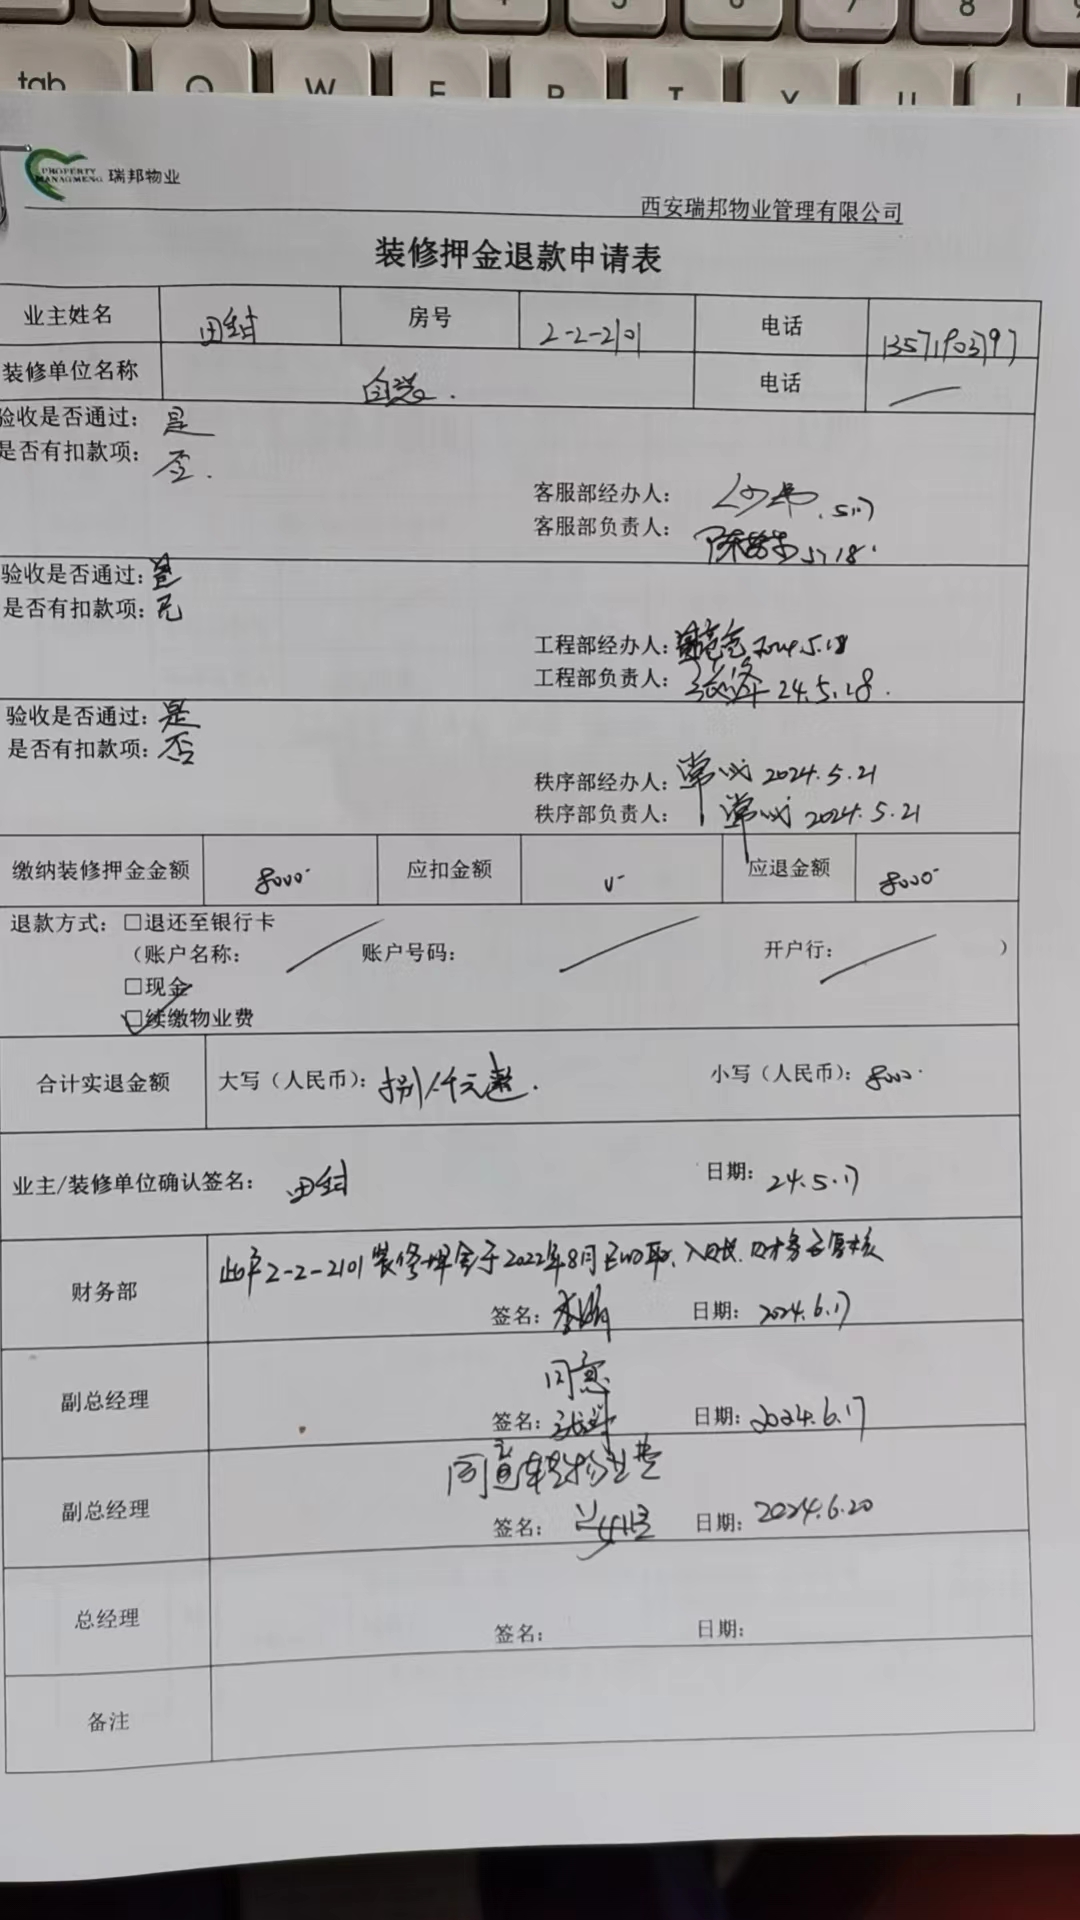 tab Q W E R T Y U
PROPERTY
MANAGMENG 瑞邦物业
西安瑞邦物业管理有限公司
装修押金退款申请表
业主姓名 田 房号 2-2-2101 电话 13571903797
装修单位名称 自装. 电话
验收是否通过: 是
是否有扣款项: 否.
客服部经办人: 5.17
客服部负责人: 陈 5.18.
验收是否通过:
是否有扣款项: 无
工程部经办人: 2024.5.18
工程部负责人: 张 24.5.18.
验收是否通过: 是
是否有扣款项: 否
秩序部经办人: 常 2024.5.21
秩序部负责人: 常 2024.5.21
缴纳装修押金金额 8000 应扣金额 应退金额 8000
退款方式: □退还至银行卡
(账户名称: 账户号码: 开户行: )
□现金
□续缴物业费
合计实退金额 大写(人民币): 捌仟元整. 小写(人民币): 8000
业主/装修单位确认签名: 田 日期: 24.5.17
财务部 此户2-2-2101装修押金于2022年8月已收取、入账. 财务已复核
签名: 李娟 日期: 2024.6.17
同意
副总经理 签名: 日期: 2024.6.17
同意转物业费
副总经理 签名: 日期: 2024.6.20
总经理 签名: 日期:
备注